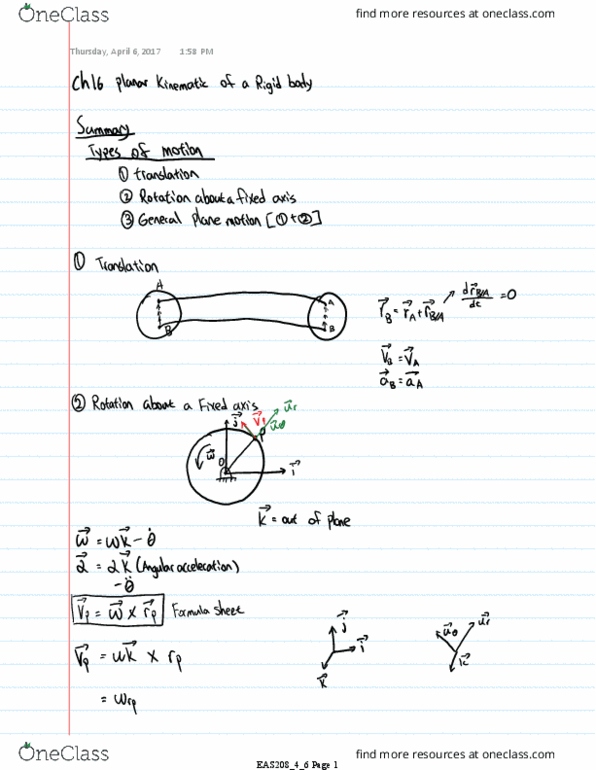 OneClass
find more resources at oneclass.com
Thursday, April 6, 2017 1:58 PM
Ch16 planar Kinematic of a Rigid body
Summary
Types of motion
① translation
② Rotation about a fixed axis
③ General plane motion [①+②]
① Translation
A
B
A
B
r⃗B = r⃗A + r⃗B/A
dr⃗B/A / dt = 0
V⃗B = V⃗A
a⃗B = a⃗A
② Rotation about a Fixed axis
j⃗ V⃗t u⃗r
u⃗θ
P
ω⃗ O
i⃗
K⃗ = out of plane
ω⃗ = ωK⃗ - θ̇
α⃗ = αK⃗ (Angular acceleration)
- θ̈
V⃗p = ω⃗ x r⃗p Formula sheet
V⃗p = ωK⃗ x rp
= ωrp
j⃗
i⃗
K⃗
u⃗θ u⃗r
K⃗
OneClass
find more resources at oneclass.com
EAS208_4_6 Page 1